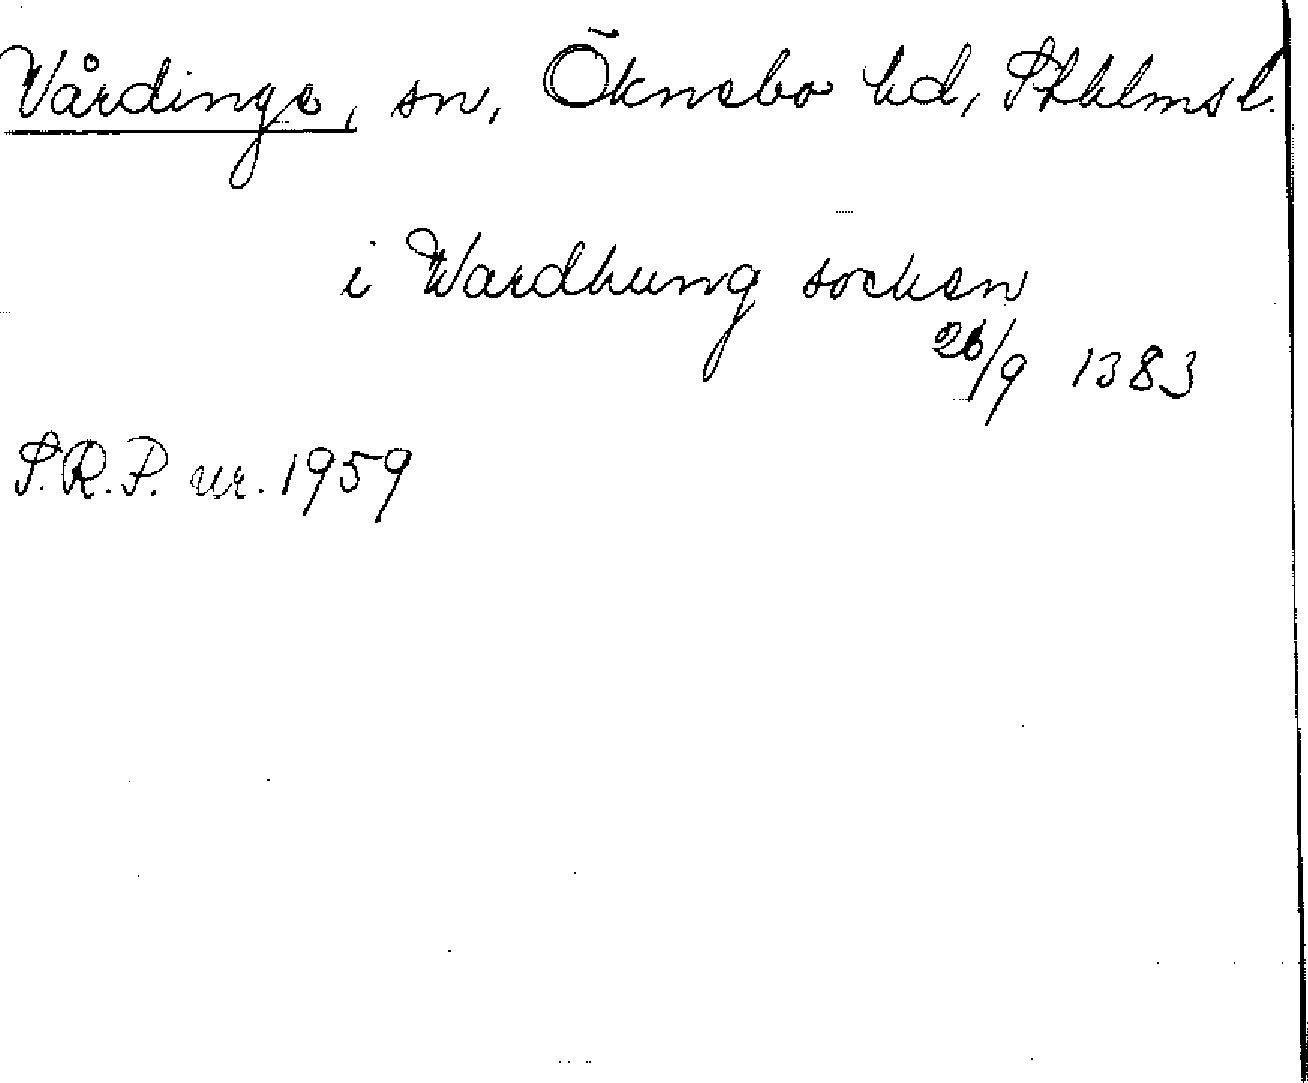 Vårdinge, sn, Öknebo hd, Sthlms l.
i Wardhung socken
26/9 1383
S.R.P. nr. 1959